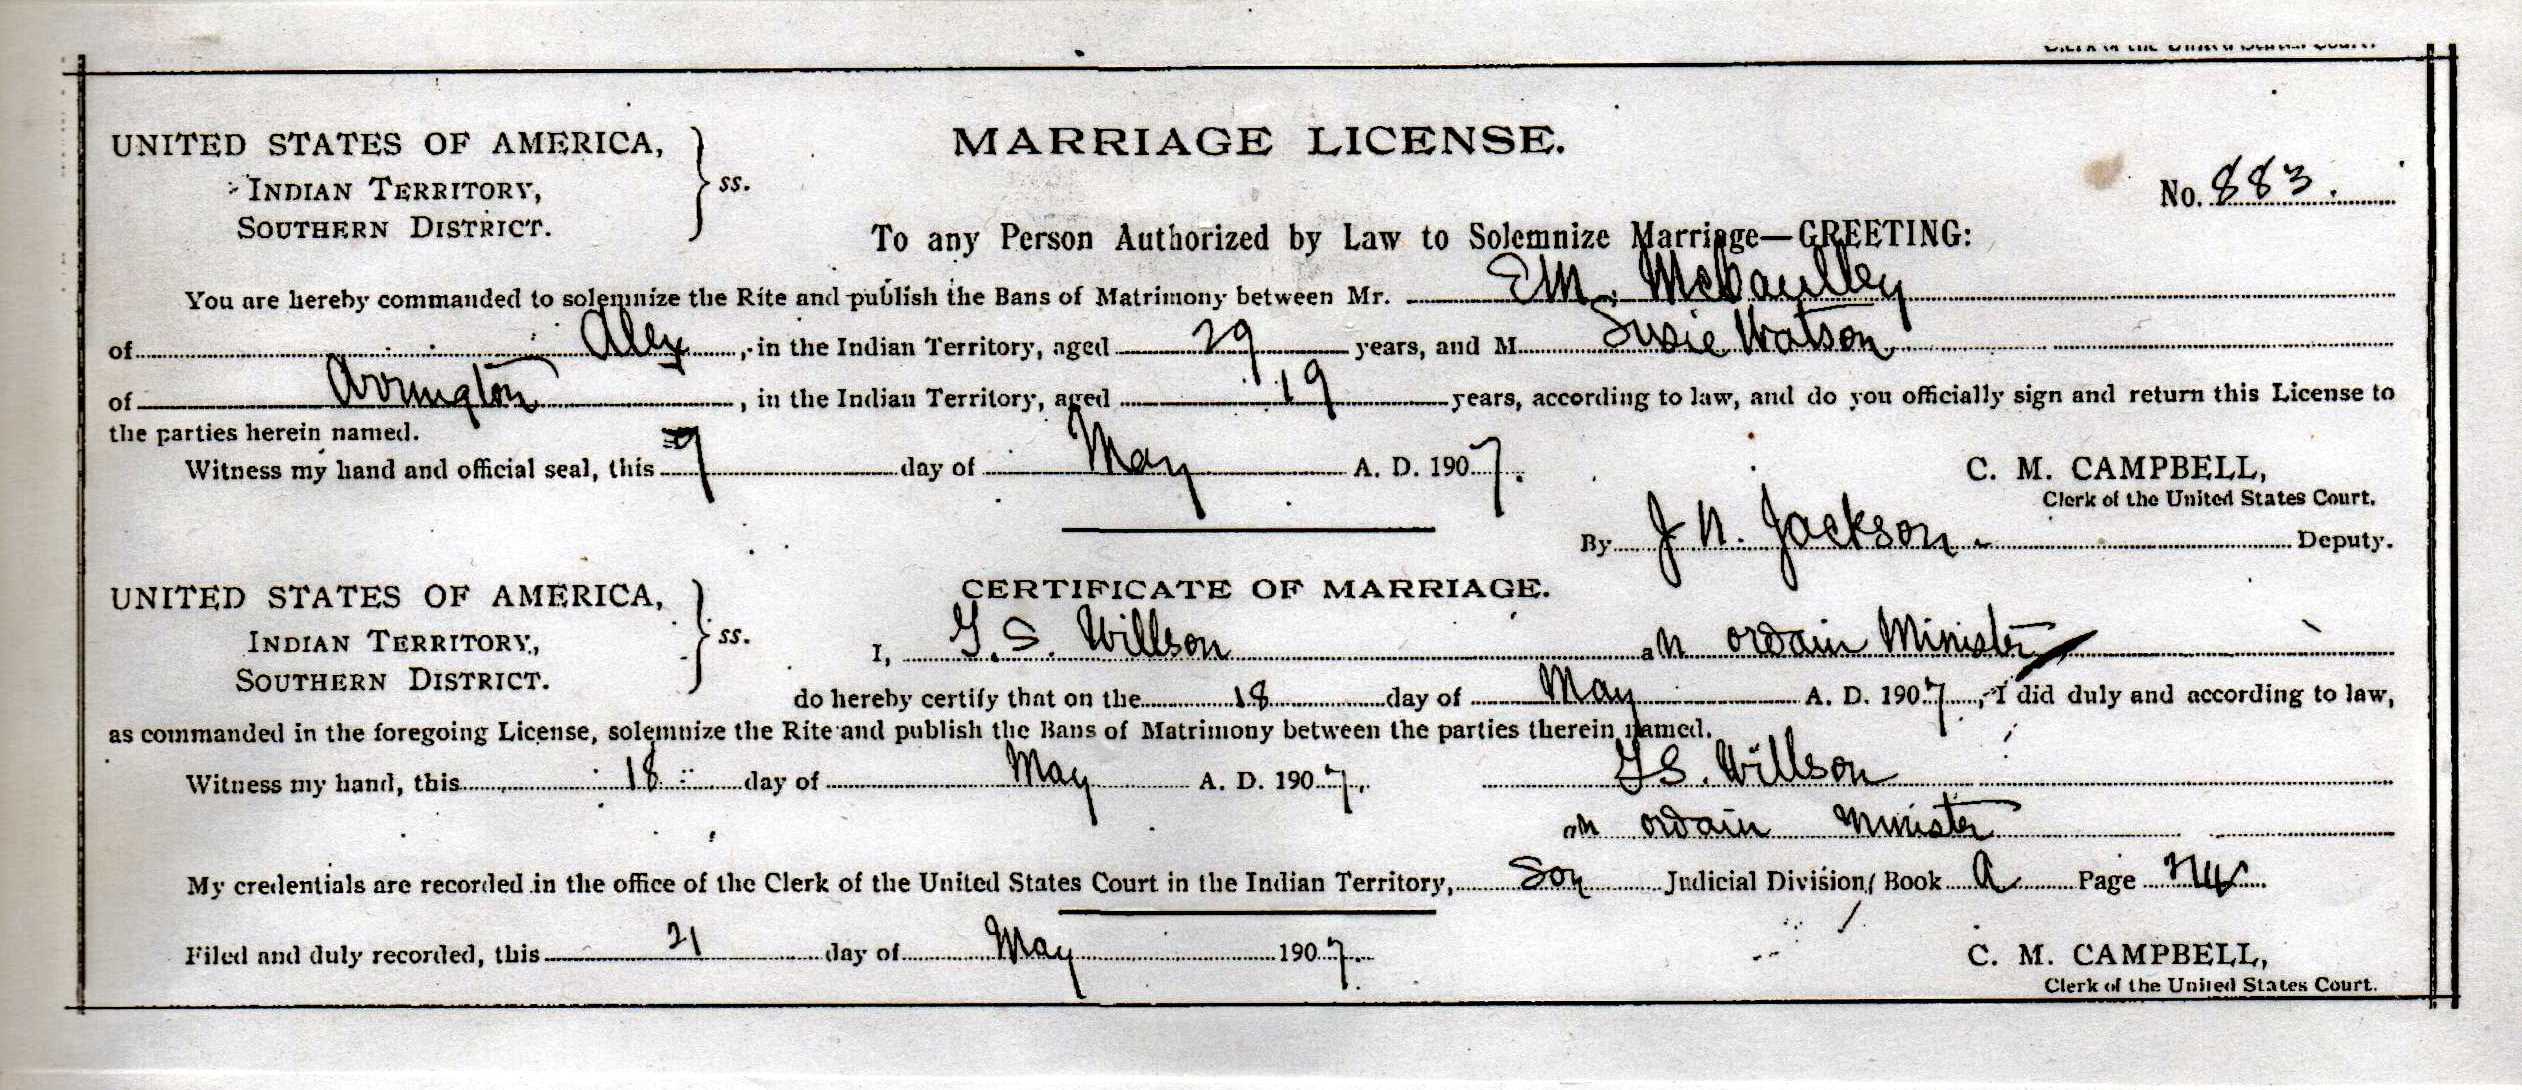 UNITED STATES OF AMERICA,
INDIAN TERRITORY,
SOUTHERN DISTRICT.
ss.
MARRIAGE LICENSE.
No. 883.
To any Person Authorized by Law to Solemnize Marriage—GREETING:
You are hereby commanded to solemnize the Rite and publish the Bans of Matrimony between Mr. E.M. McCaulley
of Alex, in the Indian Territory, aged 29 years, and M Susie Watson
of Arrington, in the Indian Territory, aged 19 years, according to law, and do you officially sign and return this License to
the parties herein named.
Witness my hand and official seal, this 7 day of May A. D. 1907.
C. M. CAMPBELL,
Clerk of the United States Court.
By J N. Jackson. Deputy.
UNITED STATES OF AMERICA,
INDIAN TERRITORY,
SOUTHERN DISTRICT.
ss.
CERTIFICATE OF MARRIAGE.
I, G. S. Willson an ordain Minister
do hereby certify that on the 18 day of May A. D. 1907, I did duly and according to law,
as commanded in the foregoing License, solemnize the Rite and publish the Bans of Matrimony between the parties therein named.
Witness my hand, this 18 day of May A. D. 1907, G S. Willson
an ordain minister
My credentials are recorded in the office of the Clerk of the United States Court in the Indian Territory, Son Judicial Division, Book A Page
Filed and duly recorded, this 21 day of May 1907.
C. M. CAMPBELL,
Clerk of the United States Court.